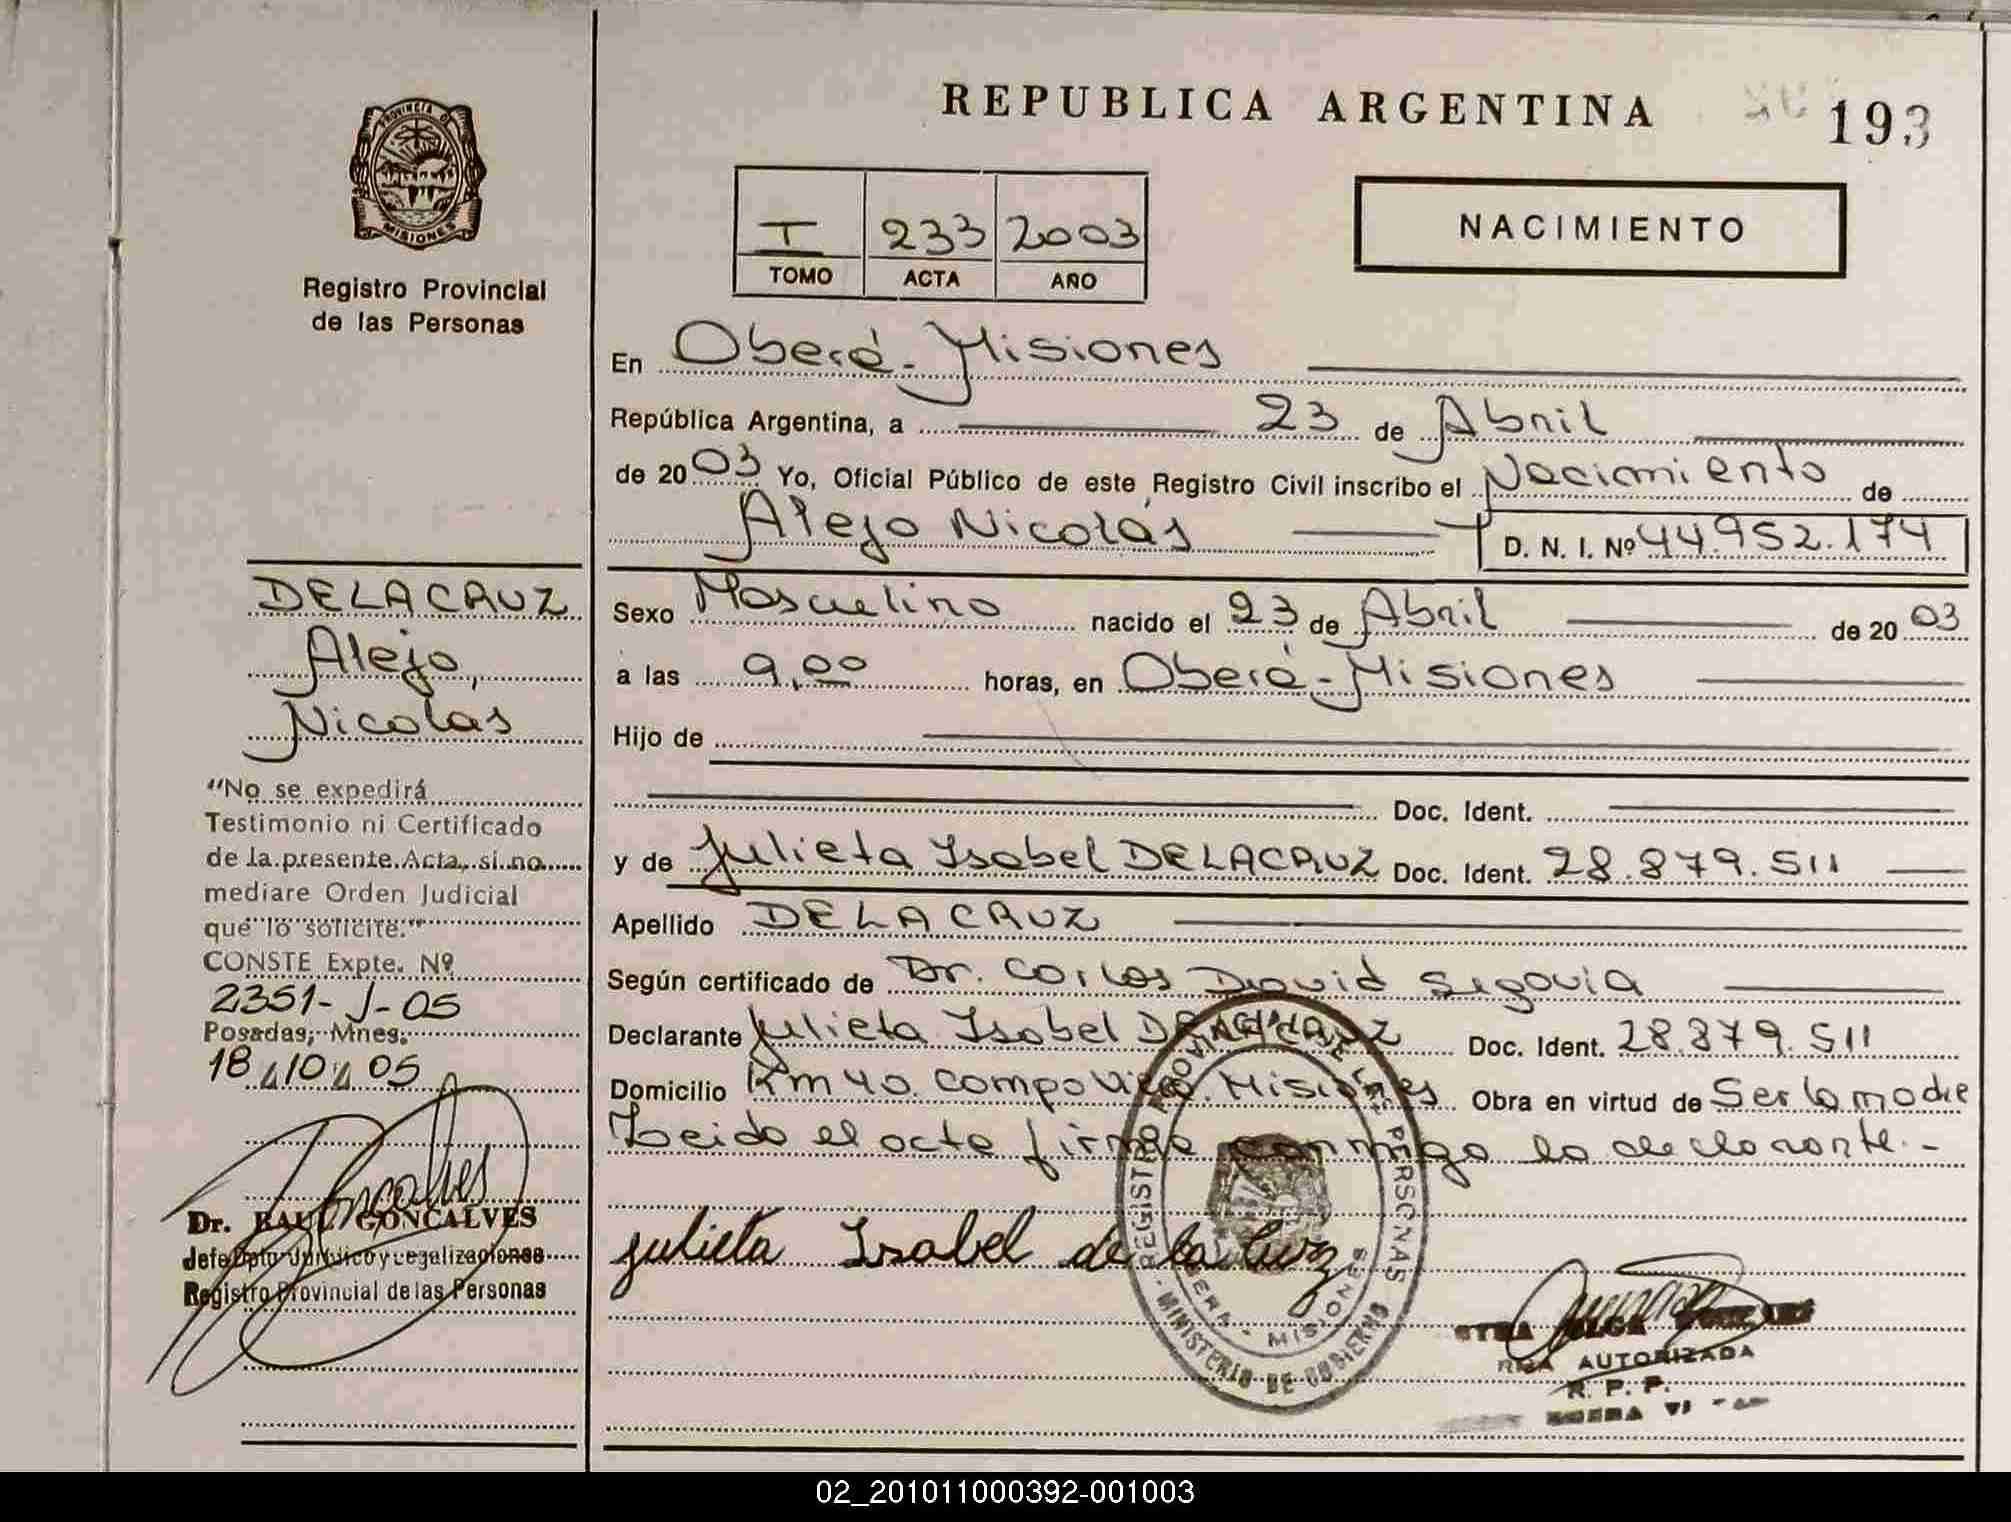 PROVINCIA DE
MISIONES
Registro Provincial
de las Personas
DELACRUZ
Alejo,
Nicolas
"No se expedirá
Testimonio ni Certificado
de la presente Acta, si no
mediare Orden Judicial
que lo solicite."
CONSTE Expte. Nº
2351-J-05
Posadas, Mnes.
18/10/05
Dr. RAUL GONCALVES
Jefe Dpto Jurídico y Legalizaciones
Registro Provincial de las Personas
REPUBLICA ARGENTINA
193
I 233 2003
TOMO ACTA AÑO
NACIMIENTO
En Oberá-Misiones
República Argentina, a 23 de Abril
de 2003 Yo, Oficial Público de este Registro Civil inscribo el Nacimiento de
Alejo Nicolás D. N. I. Nº 44.952.174
Sexo Masculino nacido el 23 de Abril de 2003
a las 9,00 horas, en Oberá-Misiones
Hijo de
Doc. Ident.
y de Julieta Isabel DELACRUZ Doc. Ident. 28.879.511
Apellido DELACRUZ
Según certificado de Dr. Carlos David Segovia
Declarante Julieta Isabel DELACRUZ Doc. Ident. 28.879.511
Domicilio Km 40. Campo Viera. Misiones Obra en virtud de Ser la madre
Leido el acta firma conmigo la declarante.-
julieta Isabel de la Cruz
REGISTRO PROVINCIAL DE LAS PERSONAS
MISIONES
- MINISTERIO DE GOBIERNO -
OLGA
AUTORIZADA
R. P. P.
02_201011000392-001003